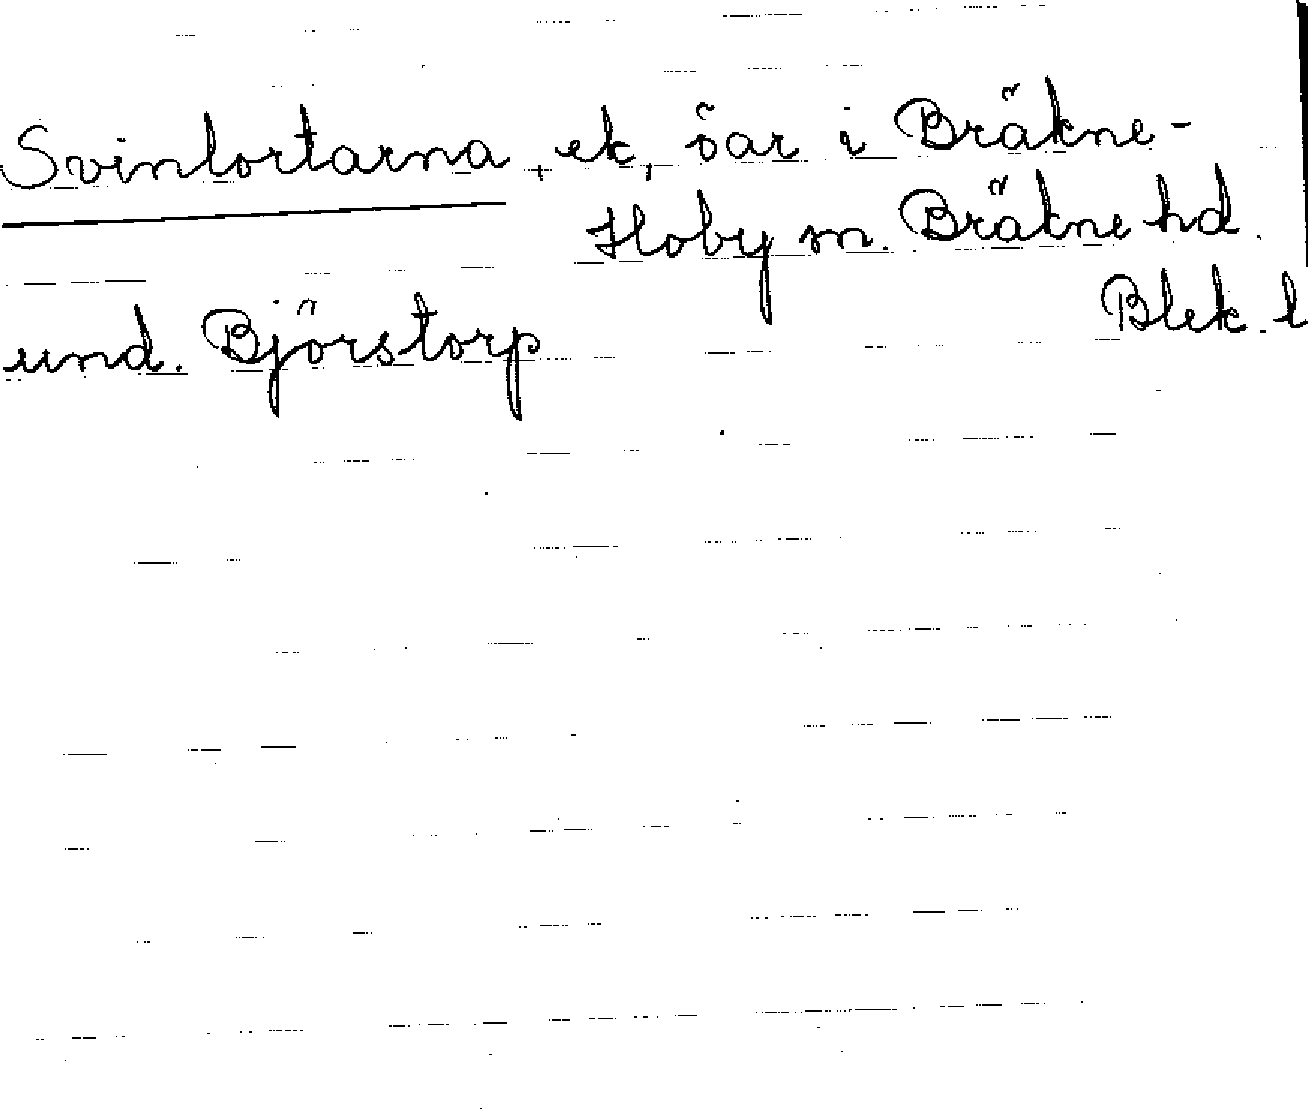 Svinlortarna, ek, öar i Bräkne-
Hoby sn. Bräkne hd.
Blek. l
und. Björstorp